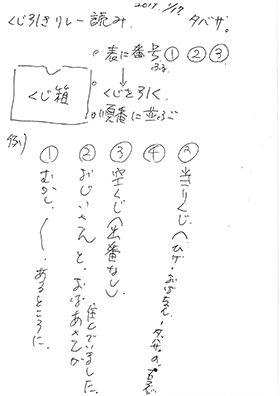 2017. 1/17
くじ引きリレー読み.
タバサ。
。表に番号 ① ② ③.
↓
くじ箱
。くじを引く.
。順番に並ぶ
例)
① むかし、〳〵、あるところに.
② おじいさんと、おばあさんが
住んでいました.
③ 空くじ(出番なし)
④
当りくじ.(ひげ・おばちゃん・タバサの